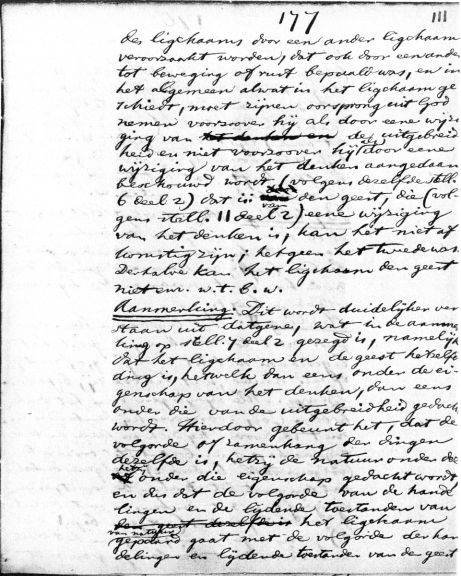 177
111
des ligchaams door een ander ligchaam
veroorzaakt worden, dat ook door een ander
tot beweging of rust bepaald was, en in
het algemeen al wat in het ligchaam ge
schiedt, moet zijnen oorsprong uit God
nemen voorzoover hij als door eene wijzi
ging van tot denken en de uitgebreid
heid en niet voorzoover hij als door eene
wijziging van het denken aangedaan
beschouwd wordt (volgens dezelfde stell.
6 deel 2) dat is van den geest, die (vol
gens stell. 11 deel 2) eene wijziging
van het denken is, kan het niet af
komstig zijn; hetgeen het tweede was.
Derhalve kan het ligchaam den geest
niet enz. w. t. b. w.
Aanmerking. Dit wordt duidelijker ver
staan uit datgene, wat in de aanmer
king op stell. 7 deel 2 gezegd is, namelijk
dat het ligchaam en de geest hetzelfde
ding is, hetwelk dan eens onder de ei
genschap van het denken, dan eens
onder die van de uitgebreidheid gedacht
wordt. Hierdoor gebeurt het, dat de
volgorde of zamenhang der dingen
dezelfde is, hetzij de natuur onder de
hetzij onder die eigenschap gedacht wordt,
en dus dat de volgorde van de hande
lingen en de lijdende toestanden van
den geest dezelfde is het ligchaam
van nature
gepaard gaat met de volgorde der han
delingen en lijdende toestanden van den geest